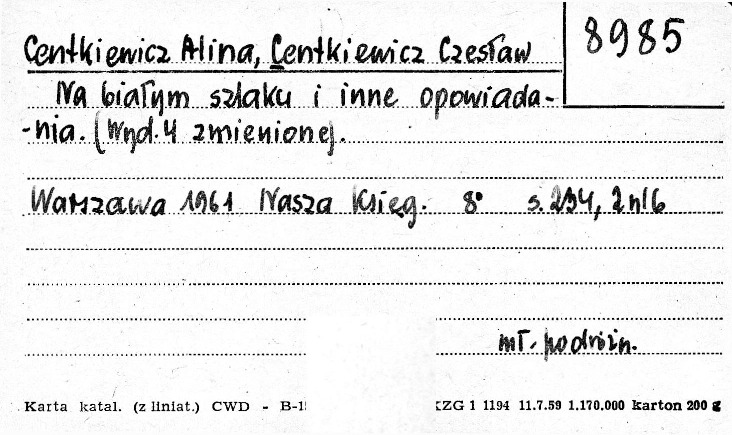 8985
Centkiewicz Alina, Centkiewicz Czesław
Na białym szlaku i inne opowiada-
-nia. (Wyd. 4 zmienione).
Warszawa 1961 Nasza Księg. 8° s. 294, 2 nlb
mł. podróżn.
Karta katal. (z liniat.) CWD - B-1 KZG 1 1194 11.7.59 1.170.000 karton 200 g